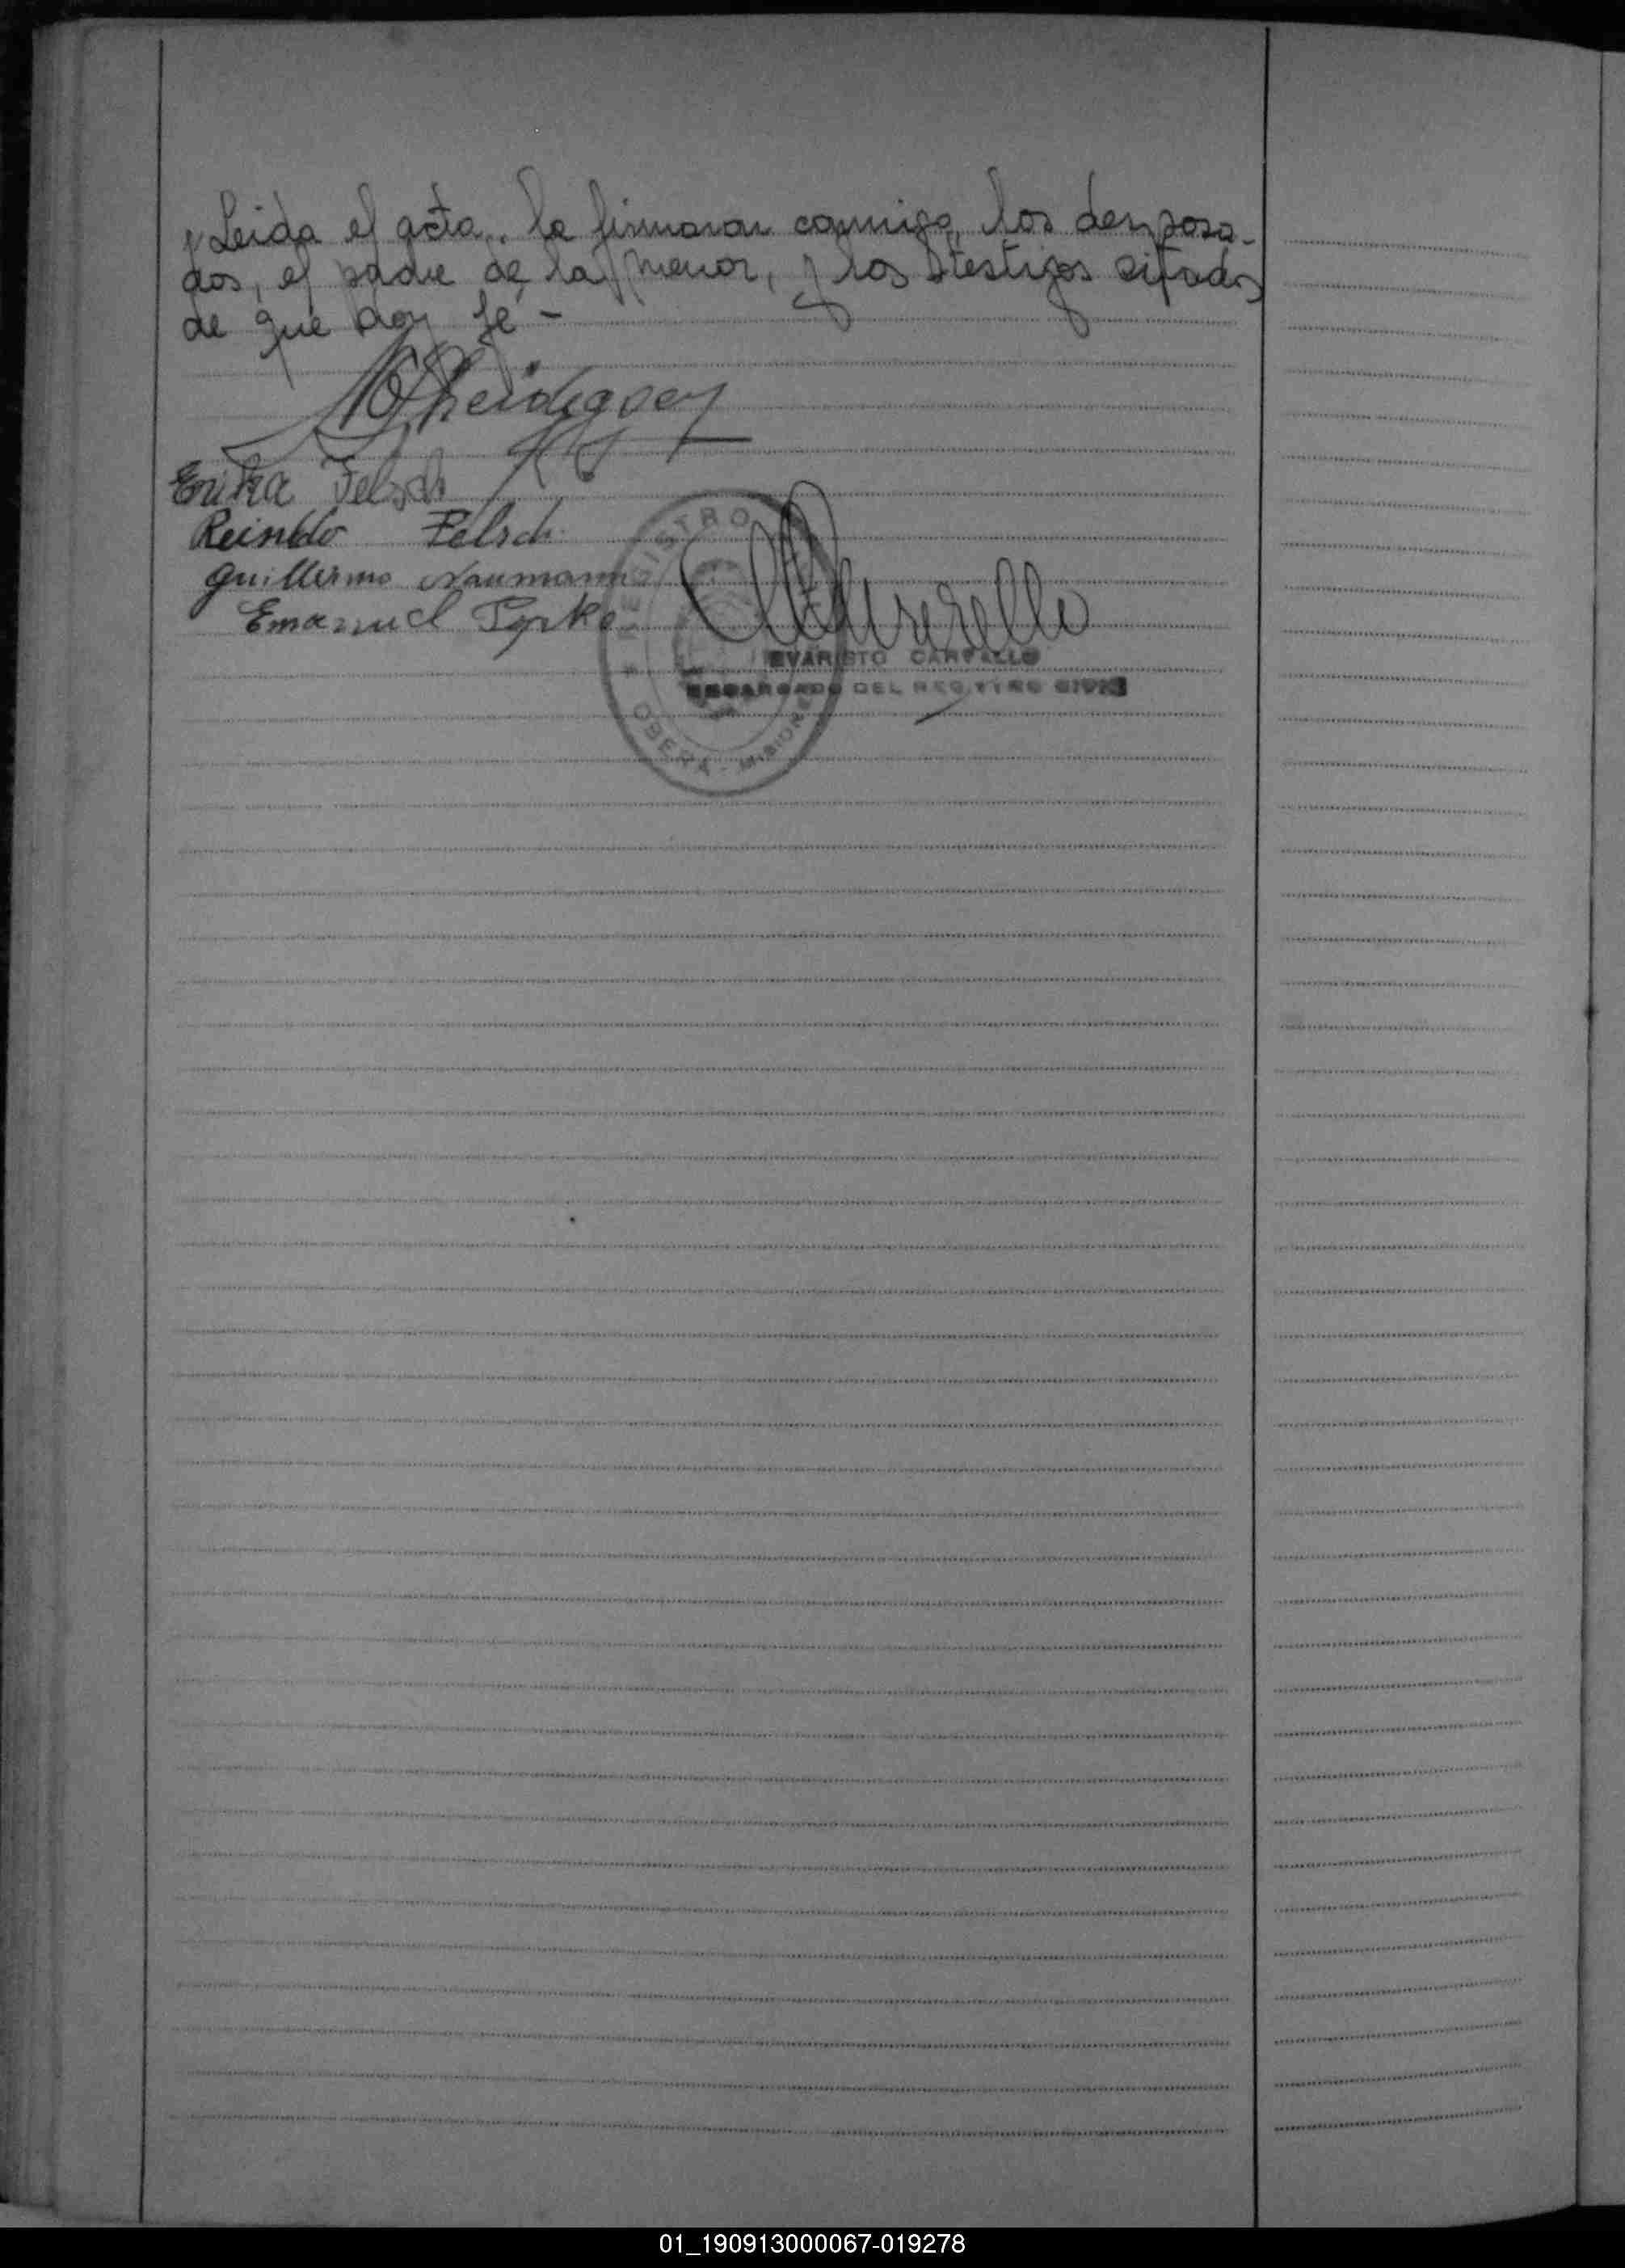 y Leida el acta, la firmaron conmigo, los desposa-
dos, el padre de la menor, y los testigos citados
de que doy fé -
Erika Felsch
Reinoldo Felsch
Guillermo Naumann
Emanuel
REGISTRO
EVARISTO CARVALLO
ENCARGADO DEL REGISTRO CIVIL
OBERA - MISIONES
01_190913000067-019278